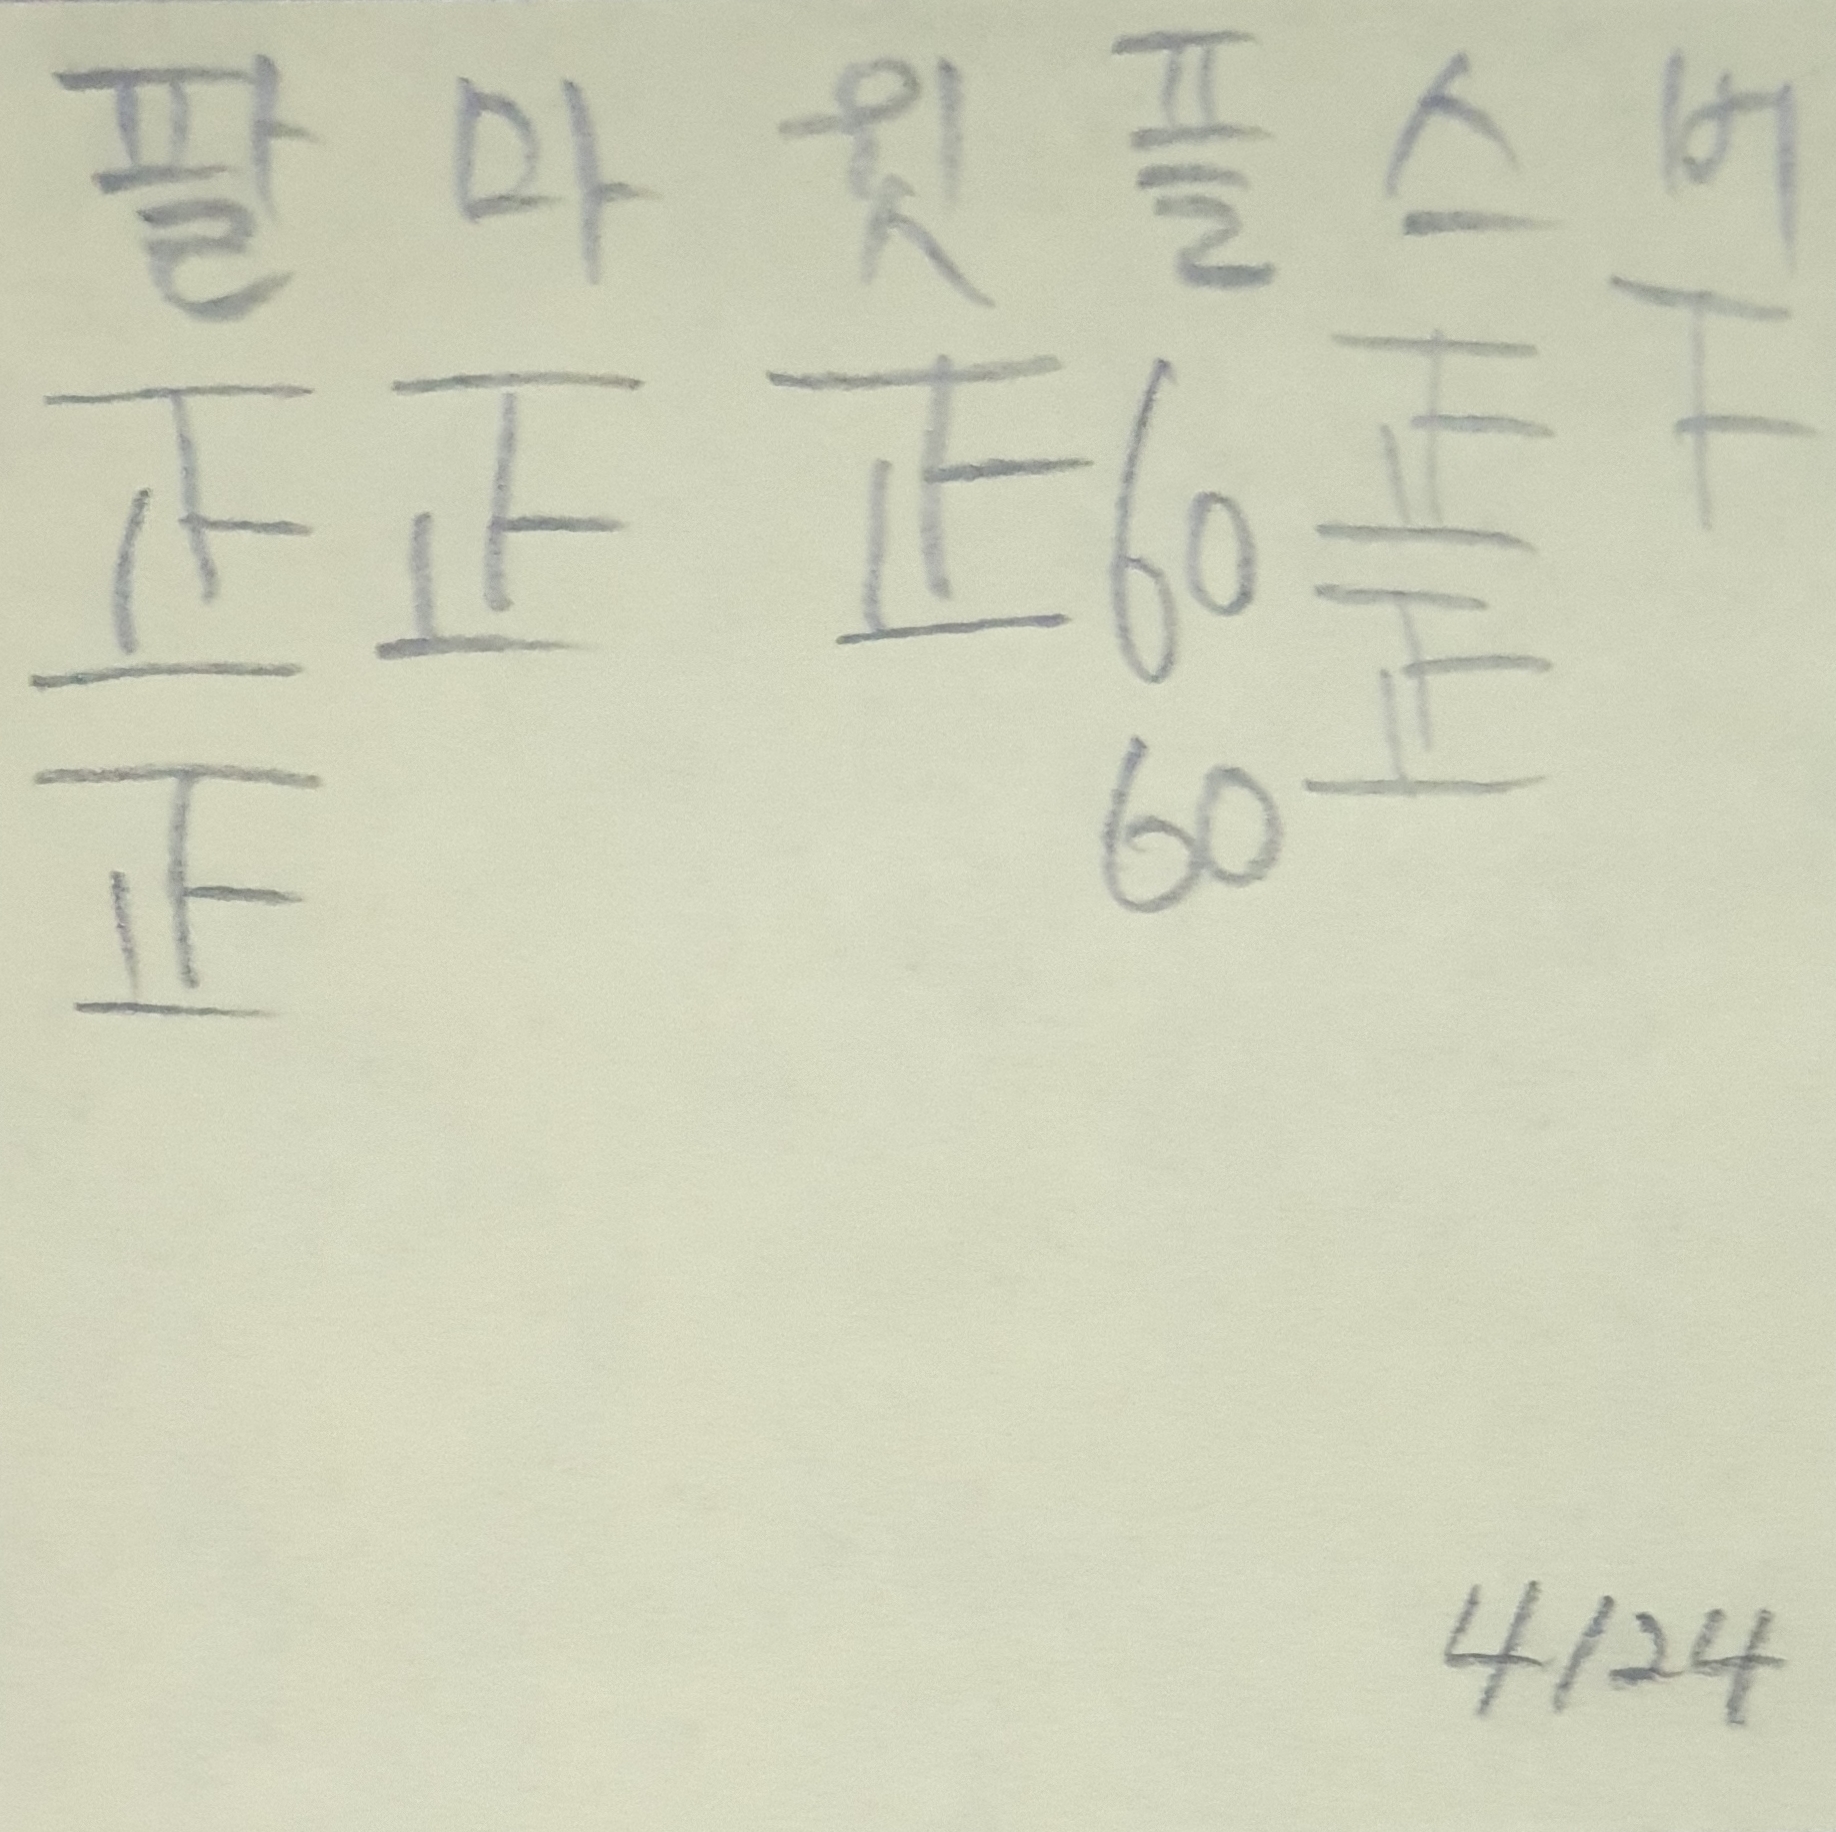 팔 마 윗 플 스 버
正 正 正 60 正 下
正 60 正
4/24